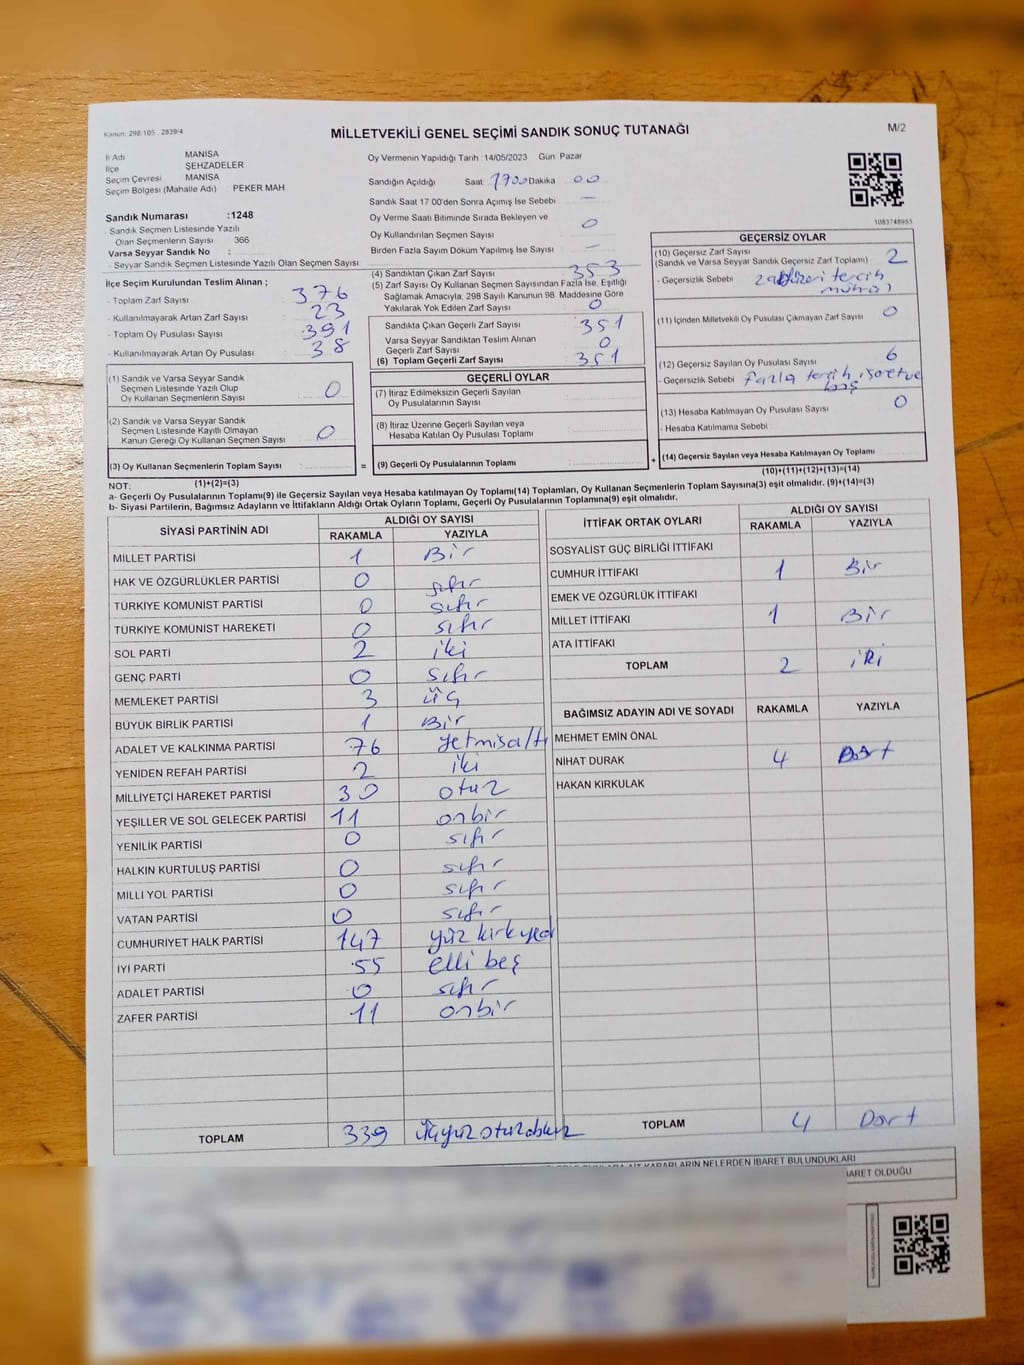 Kanun: 298/105 . 2839/4
MİLLETVEKİLİ GENEL SEÇİMİ SANDIK SONUÇ TUTANAĞI
M/2
İl Adı MANİSA
İlçe ŞEHZADELER
Seçim Çevresi MANİSA
Seçim Bölgesi (Mahalle Adı) PEKER MAH.
Sandık Numarası :1248
- Sandık Seçmen Listesinde Yazılı
Olan Seçmenlerin Sayısı 366
Varsa Seyyar Sandık No :
- Seyyar Sandık Seçmen Listesinde Yazılı Olan Seçmen Sayısı
İlçe Seçim Kurulundan Teslim Alınan ;
- Toplam Zarf Sayısı : 376
- Kullanılmayarak Artan Zarf Sayısı : 23
- Toplam Oy Pusulası Sayısı : 391
- Kullanılmayarak Artan Oy Pusulası : 38
(1) Sandık ve Varsa Seyyar Sandık
Seçmen Listesinde Yazılı Olup
Oy Kullanan Seçmenlerin Sayısı : 0
(2) Sandık ve Varsa Seyyar Sandık
Seçmen Listesinde Kayıtlı Olmayan
Kanun Gereği Oy Kullanan Seçmen Sayısı : 0
(3) Oy Kullanan Seçmenlerin Toplam Sayısı :
Oy Vermenin Yapıldığı Tarih :14/05/2023 Gün: Pazar
Sandığın Açıldığı Saat 1700 Dakika 00
Sandık Saat 17:00'den Sonra Açımış İse Sebebi —
Oy Verme Saati Bitiminde Sırada Bekleyen ve
Oy Kullandırılan Seçmen Sayısı 0
Birden Fazla Sayım Döküm Yapılmış İse Sayısı —
(4) Sandıktan Çıkan Zarf Sayısı 353
(5) Zarf Sayısı Oy Kullanan Seçmen Sayısından Fazla İse, Eşitliği
Sağlamak Amacıyla; 298 Sayılı Kanunun 98. Maddesine Göre
Yakılarak Yok Edilen Zarf Sayısı : 0
Sandıkta Çıkan Geçerli Zarf Sayısı : 351
Varsa Seyyar Sandıktan Teslim Alınan
Geçerli Zarf Sayısı : 0
(6) Toplam Geçerli Zarf Sayısı : 351
GEÇERLİ OYLAR
(7) İtiraz Edilmeksizin Geçerli Sayılan
Oy Pusulalarının Sayısı :
(8) İtiraz Üzerine Geçerli Sayılan veya
Hesaba Katılan Oy Pusulası Toplamı :
= (9) Geçerli Oy Pusulalarının Toplamı :
1083748953
GEÇERSİZ OYLAR
(10) Geçersiz Zarf Sayısı
(Sandık ve Varsa Seyyar Sandık Geçersiz Zarf Toplamı) : 2
- Geçersizlik Sebebi tercih
(11) İçinden Milletvekili Oy Pusulası Çıkmayan Zarf Sayısı : 0
(12) Geçersiz Sayılan Oy Pusulası Sayısı 6
- Geçersizlik Sebebi fazla tercih işaret ve
boş
(13) Hesaba Katılmayan Oy Pusulası Sayısı 0
- Hesaba Katılmama Sebebi
+ (14) Geçersiz Sayılan veya Hesaba Katılmayan Oy Toplamı
NOT: (1)+(2)=(3) (10)+(11)+(12)+(13)=(14)
a- Geçerli Oy Pusulalarının Toplamı(9) ile Geçersiz Sayılan veya Hesaba katılmayan Oy Toplamı(14) Toplamları, Oy Kullanan Seçmenlerin Toplam Sayısına(3) eşit olmalıdır. (9)+(14)=(3)
b- Siyasi Partilerin, Bağımsız Adayların ve İttifakların Aldığı Ortak Oyların Toplamı, Geçerli Oy Pusulalarının Toplamına(9) eşit olmalıdır.
SİYASİ PARTİNİN ADI ALDIĞI OY SAYISI
RAKAMLA YAZIYLA
MİLLET PARTİSİ 1 Bir
HAK VE ÖZGÜRLÜKLER PARTİSİ 0 sıfır
TÜRKİYE KOMÜNİST PARTİSİ 0 sıfır
TÜRKİYE KOMÜNİST HAREKETİ 0 sıfır
SOL PARTİ 2 iki
GENÇ PARTİ 0 sıfır
MEMLEKET PARTİSİ 3 üç
BÜYÜK BİRLİK PARTİSİ 1 Bir
ADALET VE KALKINMA PARTİSİ 76 yetmişaltı
YENİDEN REFAH PARTİSİ 2 iki
MİLLİYETÇİ HAREKET PARTİSİ 30 otuz
YEŞİLLER VE SOL GELECEK PARTİSİ 11 onbir
YENİLİK PARTİSİ 0 sıfır
HALKIN KURTULUŞ PARTİSİ 0 sıfır
MİLLİ YOL PARTİSİ 0 sıfır
VATAN PARTİSİ 0 sıfır
CUMHURİYET HALK PARTİSİ 147 yüz kırk yedi
İYİ PARTİ 55 elli beş
ADALET PARTİSİ 0 sıfır
ZAFER PARTİSİ 11 onbir
TOPLAM 339 üçyüzotuzdokuz
İTTİFAK ORTAK OYLARI ALDIĞI OY SAYISI
RAKAMLA YAZIYLA
SOSYALİST GÜÇ BİRLİĞİ İTTİFAKI
CUMHUR İTTİFAKI 1 Bir
EMEK VE ÖZGÜRLÜK İTTİFAKI
MİLLET İTTİFAKI 1 Bir
ATA İTTİFAKI
TOPLAM 2 iki
BAĞIMSIZ ADAYIN ADI VE SOYADI RAKAMLA YAZIYLA
MEHMET EMİN ÖNAL
NİHAT DURAK 4 Dört
HAKAN KIRKULAK
TOPLAM 4 Dört
KARARLARIN NELERDEN İBARET BULUNDUKLARI
İBARET OLDUĞU